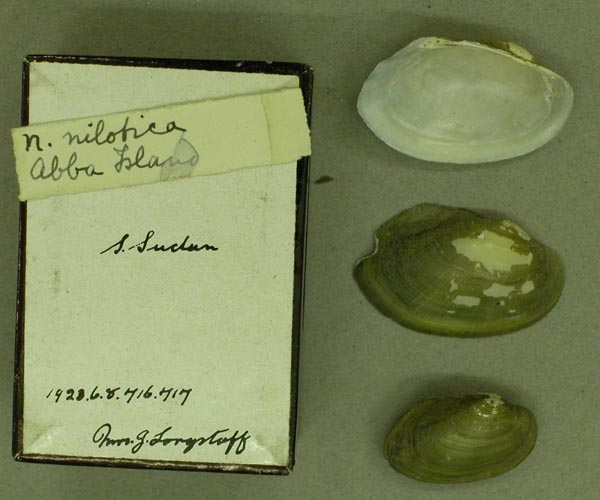 N. nilotica
Abba Island
S. Sudan
1923.6.8.716.717
Mrs. G. Longstaff